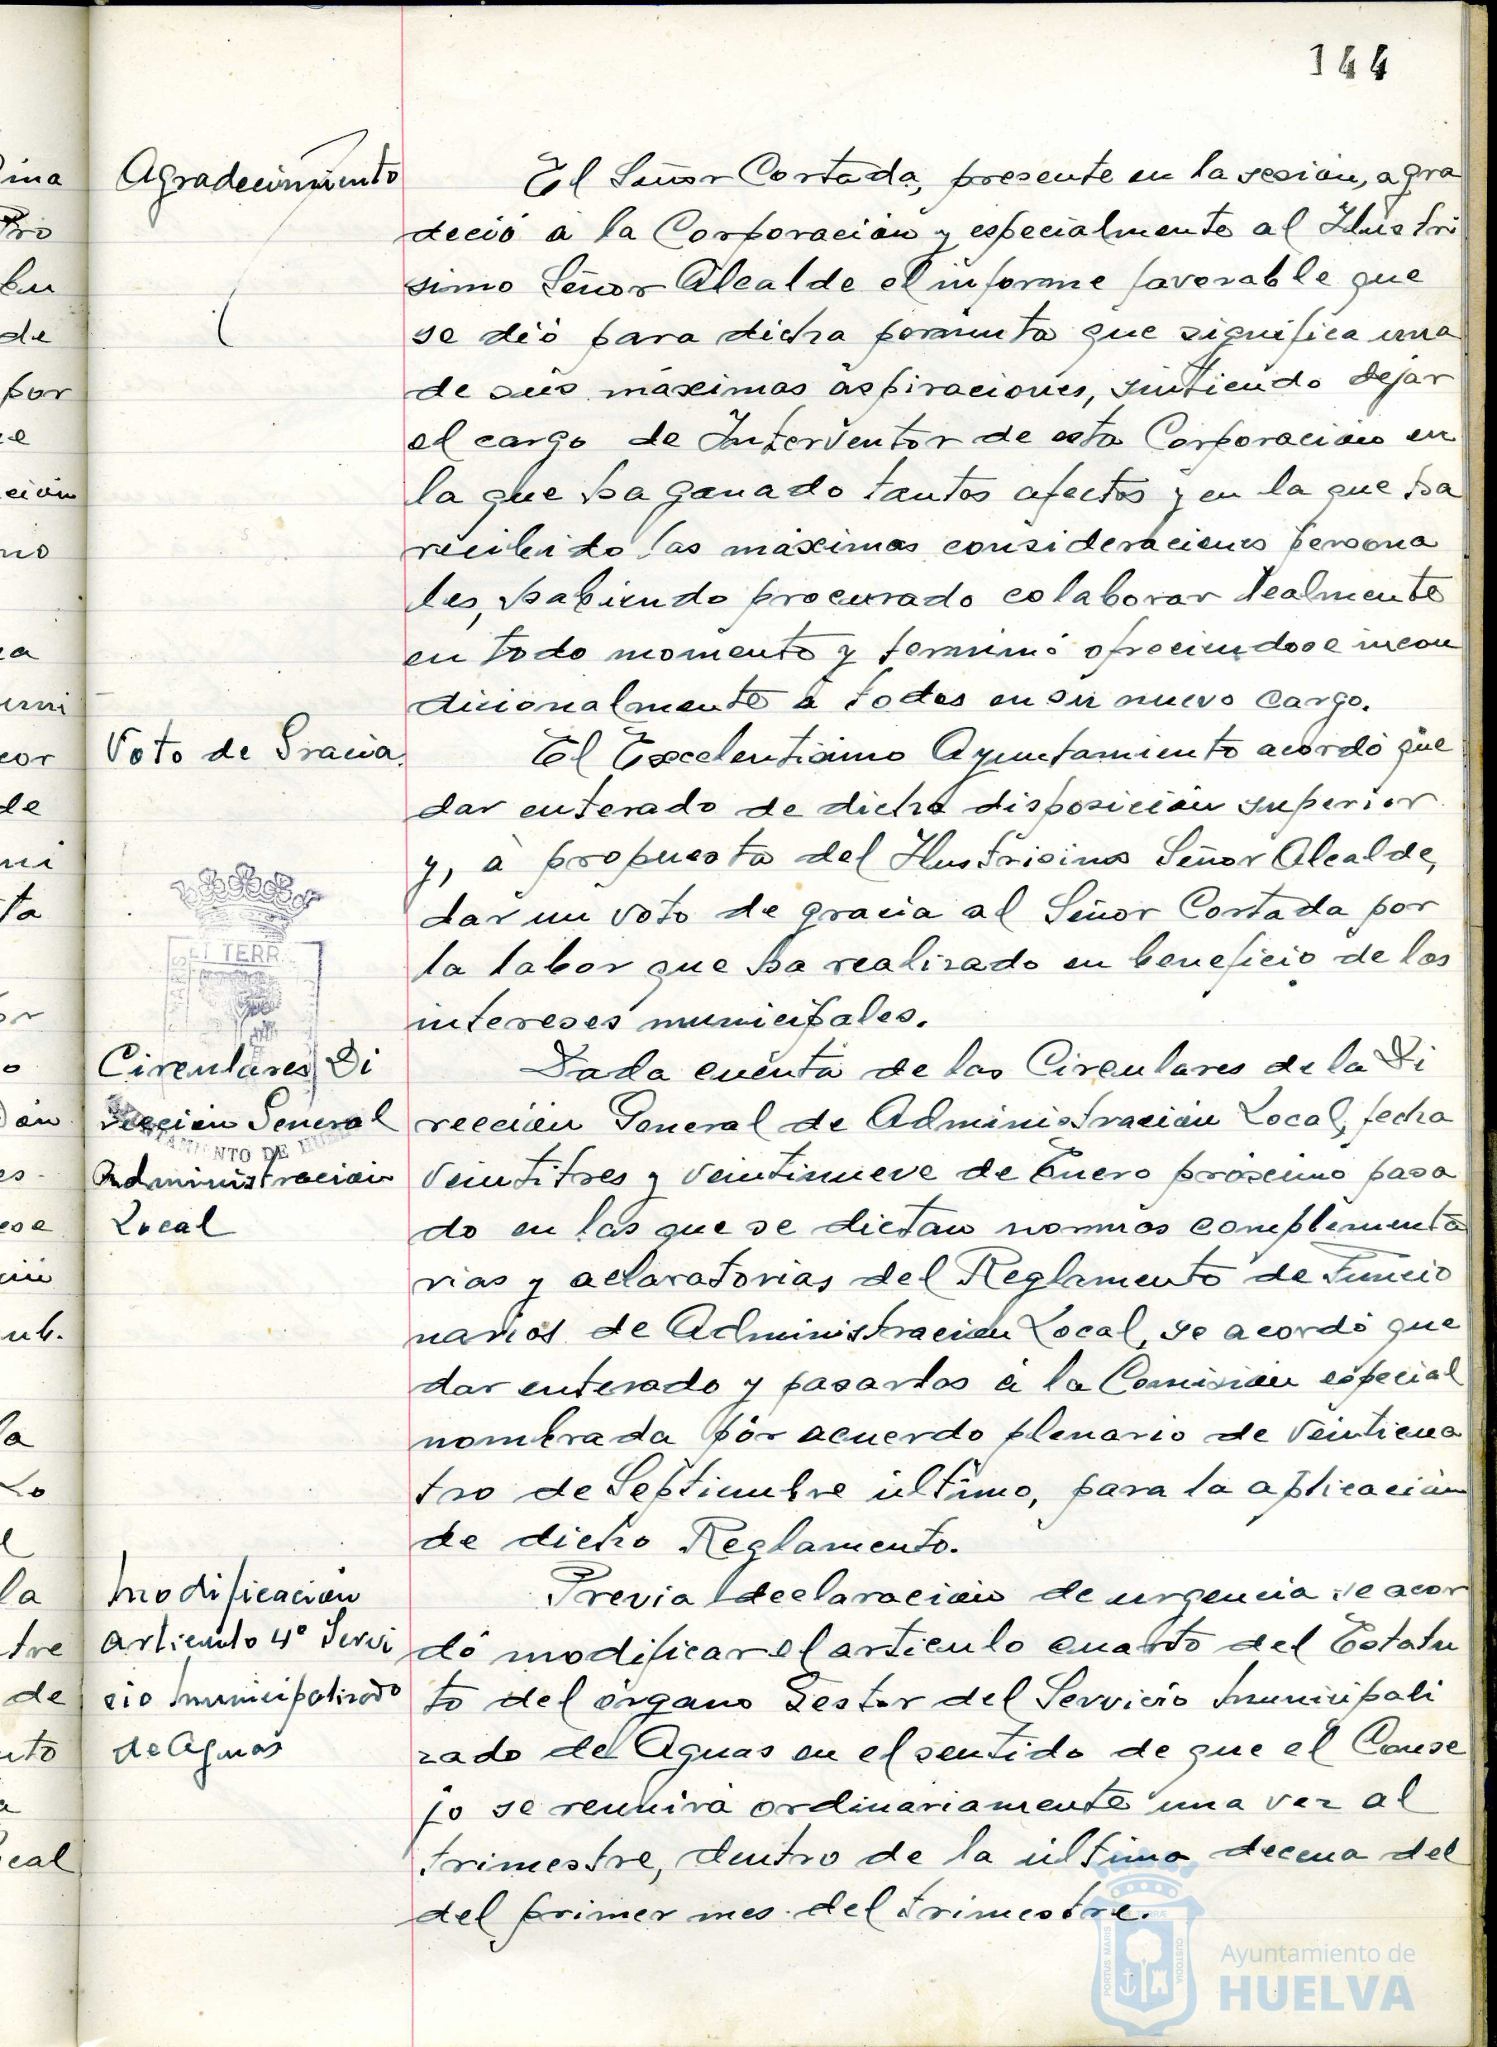 144
Agradecimiento
El Señor Cortada, presente en la sesión, agra
deció á la Corporación y especialmente al Ilustri
simo Señor Alcalde el informe favorable que
se dió para dicha permuta que significa una
de sus máximas aspiraciones, sintiendo dejar
el cargo de Interventor de esta Corporación en
la que ha ganado tantos afectos y en la que ha
recibido las máximas consideraciones persona
les, habiendo procurado colaborar lealmente
en todo momento y terminó ofreciendose incon
dicionalmente á todos en su nuevo cargo.
Voto de Gracia.
El Excelentisimo Ayuntamiento acordó que
dar enterado de dicha disposición superior
y, á propuesta del Ilustrisimo Señor Alcalde,
dar un voto de gracia al Señor Cortada por
la labor que ha realizado en beneficio de los
intereses municipales.
Circulares Di
rección General
Administración
Local
Dada cuenta de las Circulares de la Di
rección General de Administración Local, fecha
veintitres y veintinueve de Enero próximo pasa
do en las que se dictan normas complementa
rias y aclaratorias del Reglamento de Funcio
narios de Administración Local, se acordó que
dar enterado y pasarlas á la Comisión especial
nombrada por acuerdo plenario de veinticua
tro de Septiembre último, para la aplicación
de dicho Reglamento.
Modificación
articulo 4º Servi
cio Municipalizado
de Aguas
Previa declaración de urgencia se acor
dó modificar el articulo cuarto del Estatu
to del órgano Gestor del Servicio Municipali
zado de Aguas en el sentido de que el Conse
jo se reunirá ordinariamente una vez al
trimestre, dentro de la última decena del
del primer mes del trimestre.
Ayuntamiento de
HUELVA